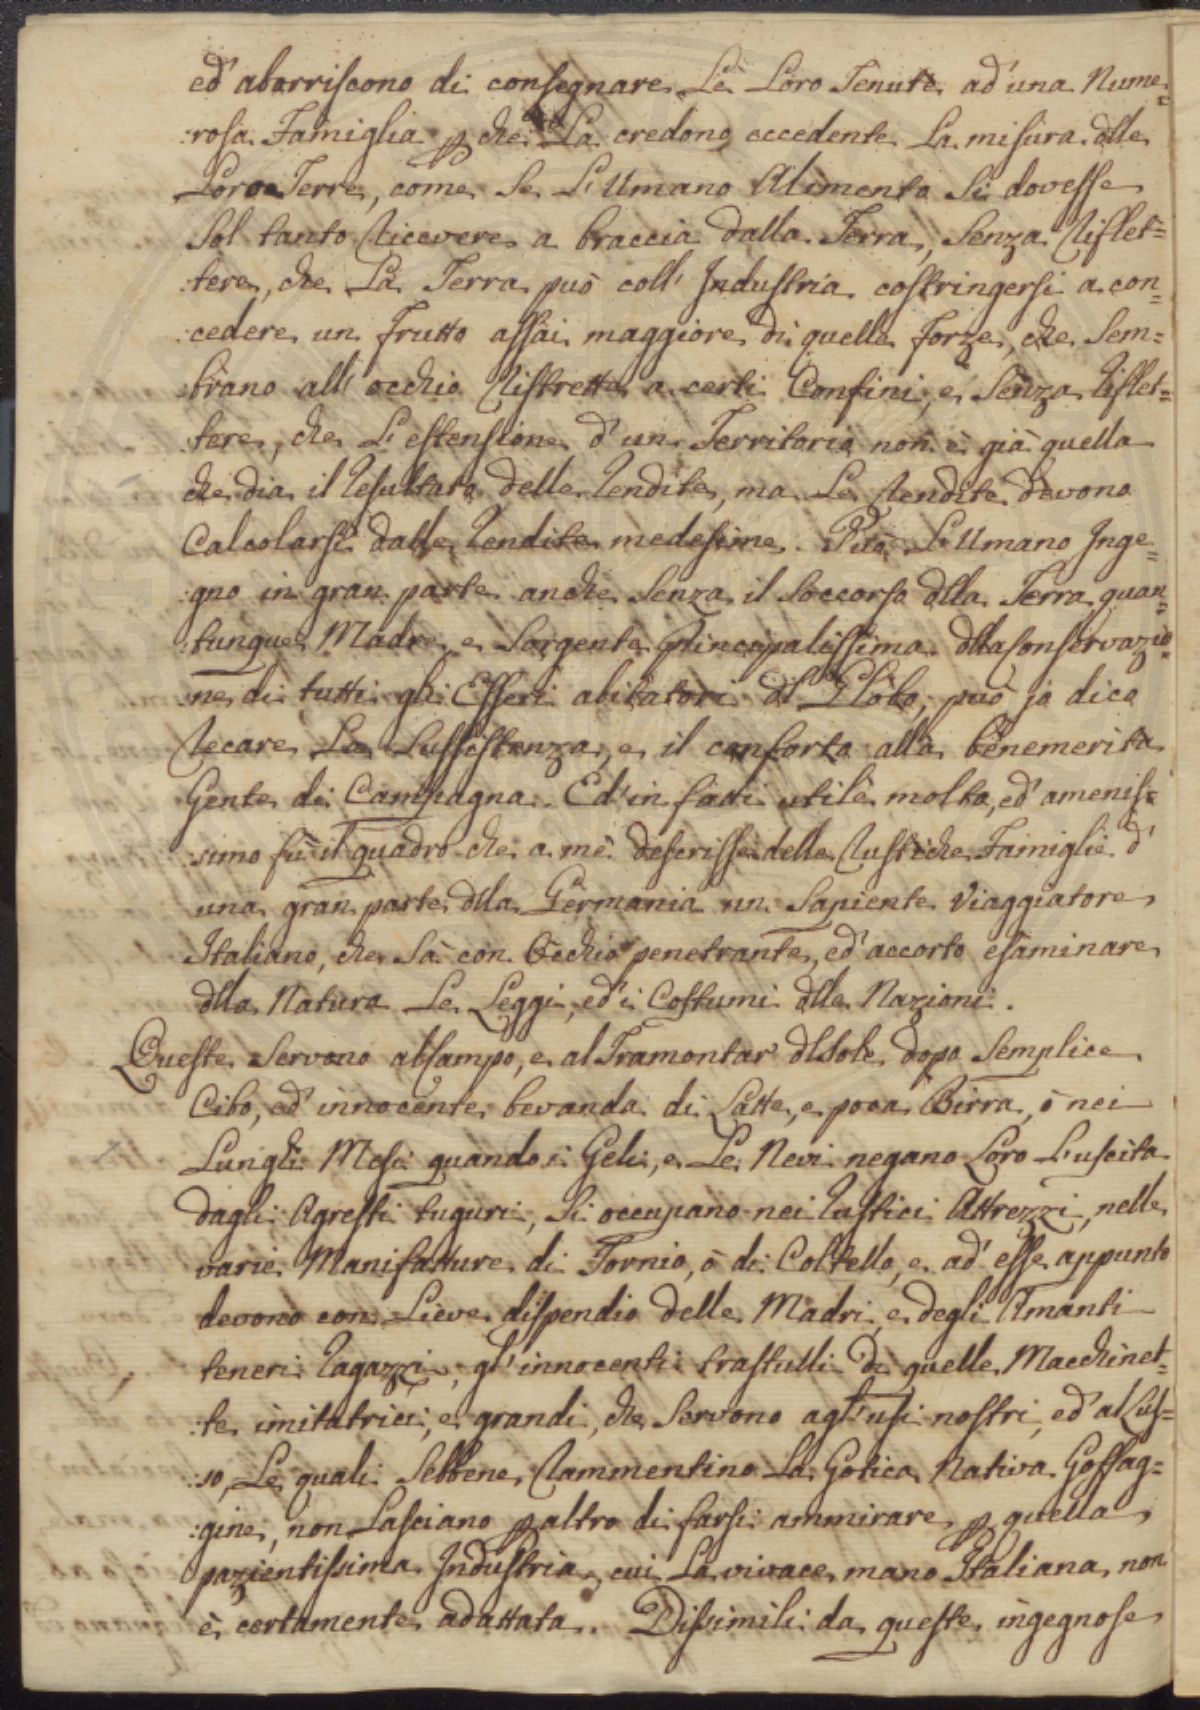 ed' aborriscono di consegnare Le Loro Tenute ad' una Nume=
:rosa Famiglia p che La credono eccedente La misura dlle
Loro Terre, come Se L' Umano Alimento Si dovesse
Sol tanto Ricevere a braccia dalla Terra, Senza Riflet=
:tere, che La Terra può coll' Industria costringersi a con=
:cedere un frutto assai maggiore di quelle forze, che Sem=
:brano all' occhio Ristretto a certi Confini, e Senza Riflet=
:tere, che L' estensione d' un Territorio non è già quella
che dia il Resultato delle Rendite, ma Le Rendite devono
Calcolarsi dalle Rendite medesime. Può L' Umano Inge=
:gno in gran parte anche Senza il Soccorso dlla Terra quan=
:tunque Madre, e Sorgente principalissima dlla Conservazio=
:ne di tutti gli Esseri abitatori dl Globo, può jo dico
Recare La Sussistenza, e il conforto alla benemerita
Gente di Campagna. Ed' in fatti utile molto, ed' amenis=
:simo fù il quadro che a mè descrisse delle Rustiche Famiglie d'
una gran parte dlla Germania un Sapiente Viaggiatore
Italiano, che Sà con Occhio penetrante, ed' accorto esaminare
dlla Natura Le Leggi, ed' i Costumi dlle Nazioni.
Queste Servono al Campo, e al Tramontar dl Sole dopo Semplice
Cibo, ed' innocente bevanda di Latte, e poca Birra, ò nei
Lunghi Mesi quando i Geli, e Le Nevi negano Loro L' uscita
dagli Agresti tuguri, Si occupano nei Rustici Attrezzi, nelle
varie Manifatture di Tornio, ò di Coltello, e ad' esse appunto
devono con Lieve dispendio delle Madri, e degli Amanti
teneri Ragazzi, gl' innocenti trastulli di quelle Macchinet=
:te imitatrici, e grandi, che Servono agl' usi nostri, ed' al Lus=
:so, Le quali Sebbene Rammentino La Gotica Nativa Goffag=
:gine, non Lasciano p altro di farsi ammirare p quella
pazientissima Industria, cui La vivace mano Italiana non
è certamente adattata. Dissimili da queste ingegnose